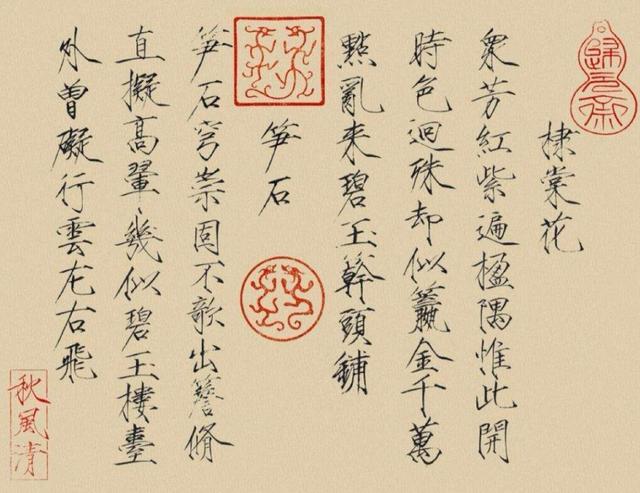 棣棠花
衆芳紅紫遍楹隅惟此開
時色迥殊却似籯金千萬
點亂来碧玉簳頭鋪
笋石
笋石穹崇固不欹出簷脩
直擬高翬幾似碧玉樓臺
外曾礙行雲左右飛
秋風清